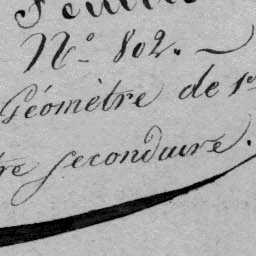 N.º 802.
Géomètre de 1
re secondaire.